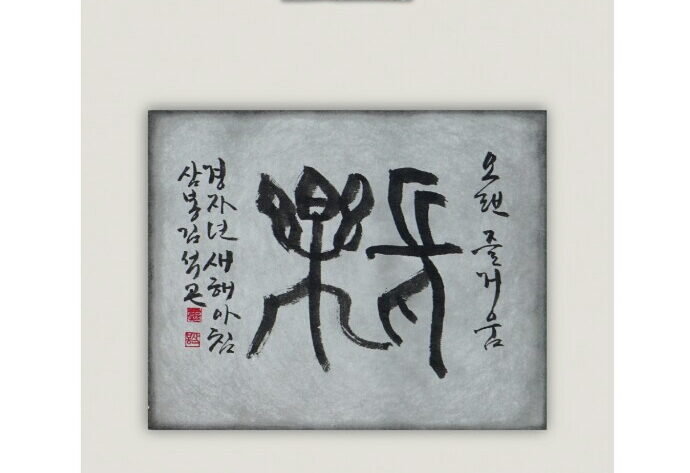 오랜 즐거움
長樂
경자년 새해 아침
삼봉 김석곤